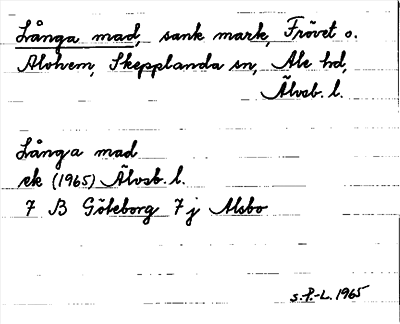 Långa mad, sank mark, Frövet o.
Alohem, Skepplanda sn, Ale hd,
Älvsb. l.
Långa mad
ek (1965) Älvsb. l.
7 B Göteborg 7 j Alsbo
s.P.-L. 1965